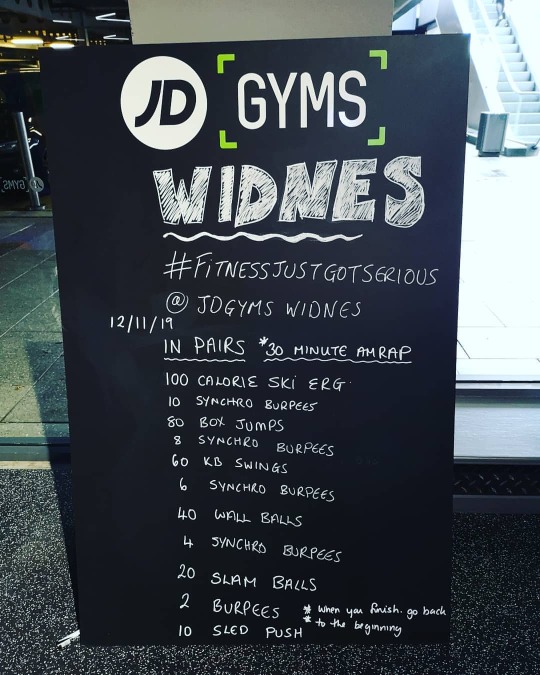 JD GYMS
WIDNES
#FITNESSJUSTGOTSERIOUS
@ JDGYMS WIDNES
12/11/19
IN PAIRS *30 MINUTE AMRAP
100 CALORIE SKI ERG
10 SYNCHRO BURPEES
80 BOX JUMPS
8 SYNCHRO BURPEES
60 KB SWINGS
6 SYNCHRO BURPEES
40 WALL BALLS
4 SYNCHRO BURPEES
20 SLAM BALLS
2 BURPEES * when you finish. go back
* to the beginning
10 SLED PUSH